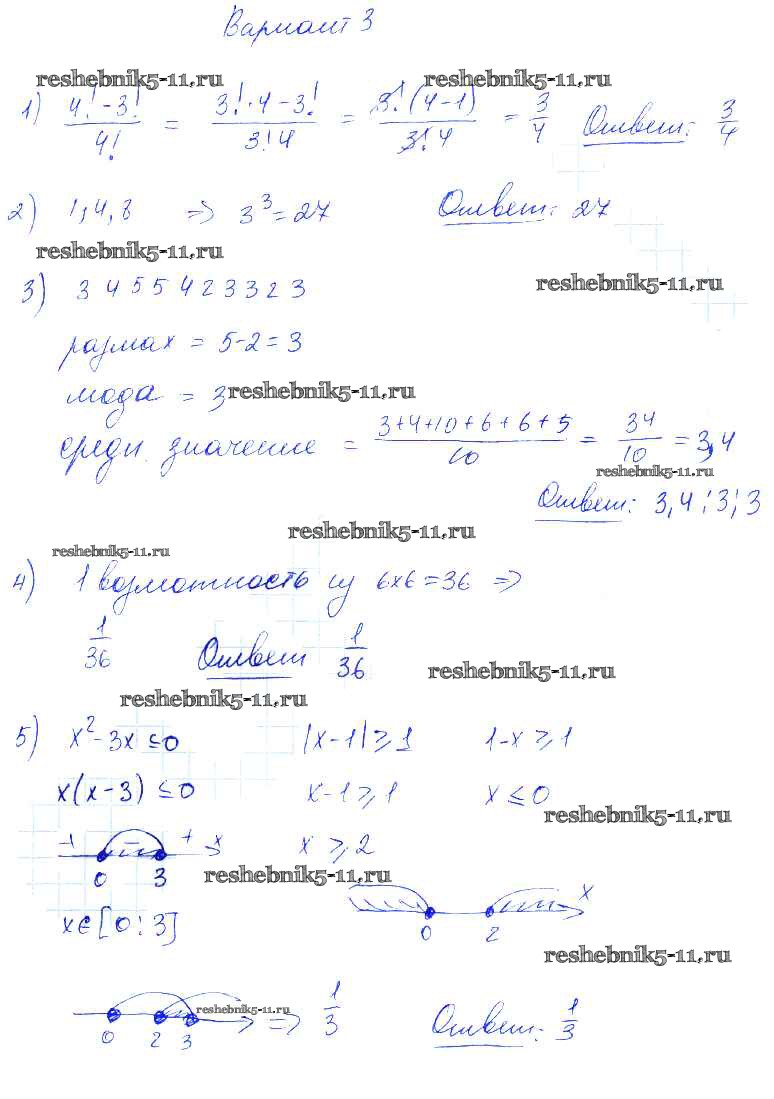 Вариант 3
reshebnik5-11.ru reshebnik5-11.ru
1) (4! - 3!)/4! = (3! · 4 - 3!)/(3! 4) = (3! (4-1))/(3! 4) = 3/4 Ответ: 3/4
2) 1, 4, 8 => 3³ = 27 Ответ: 27
reshebnik5-11.ru
reshebnik5-11.ru
3) 3 4 5 5 4 2 3 3 2 3
размах = 5-2 = 3
мода = 3 reshebnik5-11.ru
средн. значение = (3+4+10+6+6+5)/10 = 34/10 = 3,4
reshebnik5-11.ru
Ответ: 3,4; 3; 3
reshebnik5-11.ru
reshebnik5-11.ru
4) 1 возможность из 6x6 = 36 =>
1/36 Ответ 1/36
reshebnik5-11.ru
reshebnik5-11.ru
5) x² - 3x ≤ 0 |x-1| ≥ 1 1-x ≥ 1
x(x-3) ≤ 0 x-1 ≥ 1 x ≤ 0
reshebnik5-11.ru
+ - + x x ≥ 2
0 3 reshebnik5-11.ru
x
0 2
x∈[0;3]
reshebnik5-11.ru
reshebnik5-11.ru
=> 1/3 Ответ: 1/3
0 2 3